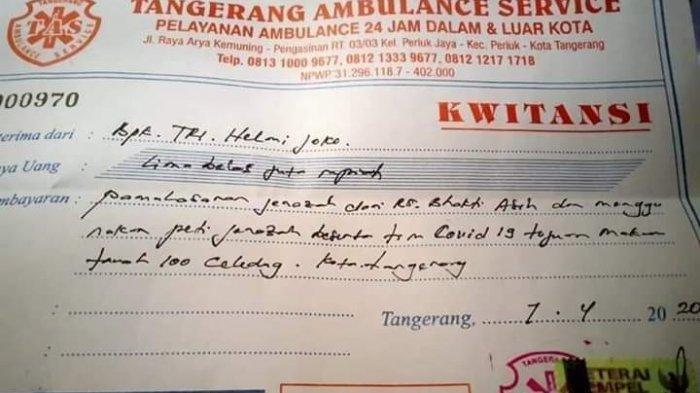 TANGERANG AMBULANCE SERVICE
PELAYANAN AMBULANCE 24 JAM DALAM & LUAR KOTA
Jl. Raya Arya Kemuning - Pengasinan RT. 03/03 Kel. Periuk Jaya - Kec. Periuk - Kota Tangerang
Telp. 0813 1000 9677, 0812 1333 9677, 0812 1217 1718
NPWP 31.296.118.7 - 402.000
TANGERANG
TAS
AMBULANCE SERVICE
000970
KWITANSI
erima dari : Bpk. TRI. Helmi Joko.
ya Uang : Lima belas juta rupiah
mbayaran : pamulasaran jenazah dari RS. Bhakti Asih dan menggu
nakan peti jenazah beserta tim Covid 19 tujuan makam
tanah 100 Ciledug. Kota tangerang
Tangerang, 7 - 4 20 20
TANGERA
METERAI
EMPEL